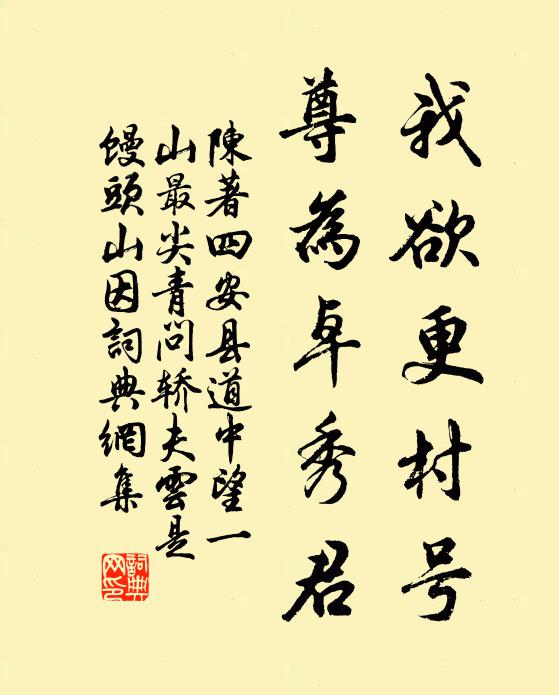 我欲更村号
尊為卓秀君
陳著四安县道中望一
山最尖青問轿夫雲是
饅頭山因詞典網集
詞典
网印